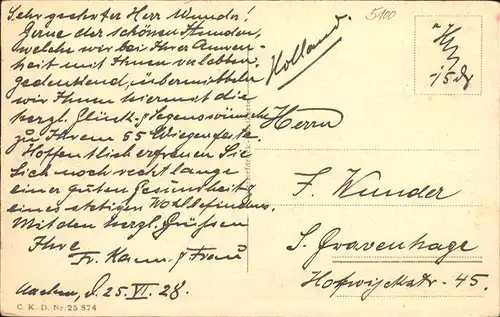 Sehr geehrter Herr Wunder!
Gerne der schönen Stunden,
welche wir bei Ihrer Anwesen-
heit mit Ihnen verlebten,
gedenkend, übermitteln
wir Ihnen hiermit die
herzl. Glück- & Segenswünsche
zu Ihrem 65 Wiegenfeste.
Hoffentlich erfreuen Sie
sich noch recht lange
einer guten Gesundheit &
eines stetigen Wohlbefindens.
Mit den herzl. Grüssen
Ihre
Fr. Kamm & Frau
Aachen, d. 25. VI. 28.
C. K. D. Nr. 25 874
Holland.
5100
15
Herrn
F. Wunder
S. Gravenhage
45.